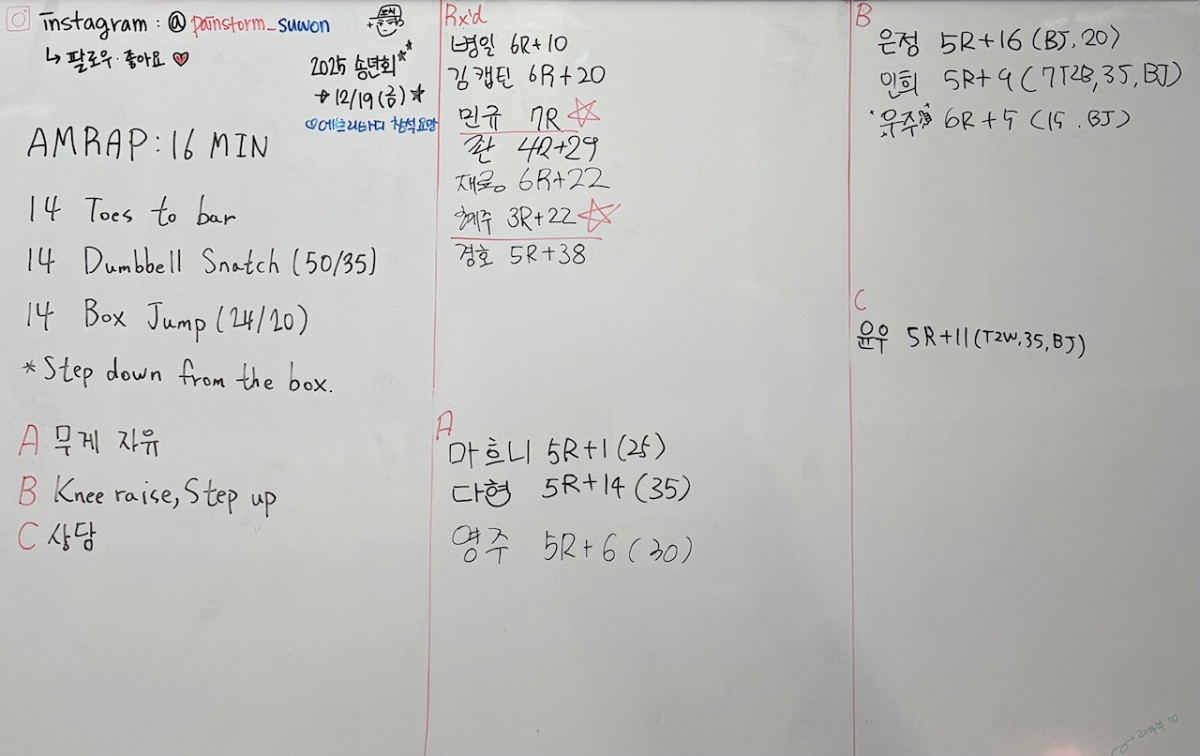 instagram : @ painstorm_suwon
↳ 팔로우·좋아요 ♥
2025 송년회**
→ 12/19(금) *
♡에브리바디 참석요망
AMRAP : 16 MIN
14 Toes to bar
14 Dumbbell Snatch (50/35)
14 Box Jump (24/20)
*Step down from the box.
A 무게 자유
B Knee raise, Step up
C 상담
Rx'd
병일 6R+10
김캡틴 6R+20
민규 7R ☆
좐 4R+29
재롱 6R+22
혜주 3R+22 ☆
경호 5R+38
A
마흐니 5R+1 (25)
다현 5R+14 (35)
영주 5R+6 (30)
B
은정 5R+16 (BJ, 20)
민희 5R+9 (7T2B, 35, BJ)
우주 6R+5 (15. BJ)
C
윤우 5R+11 (T2W, 35, BJ)